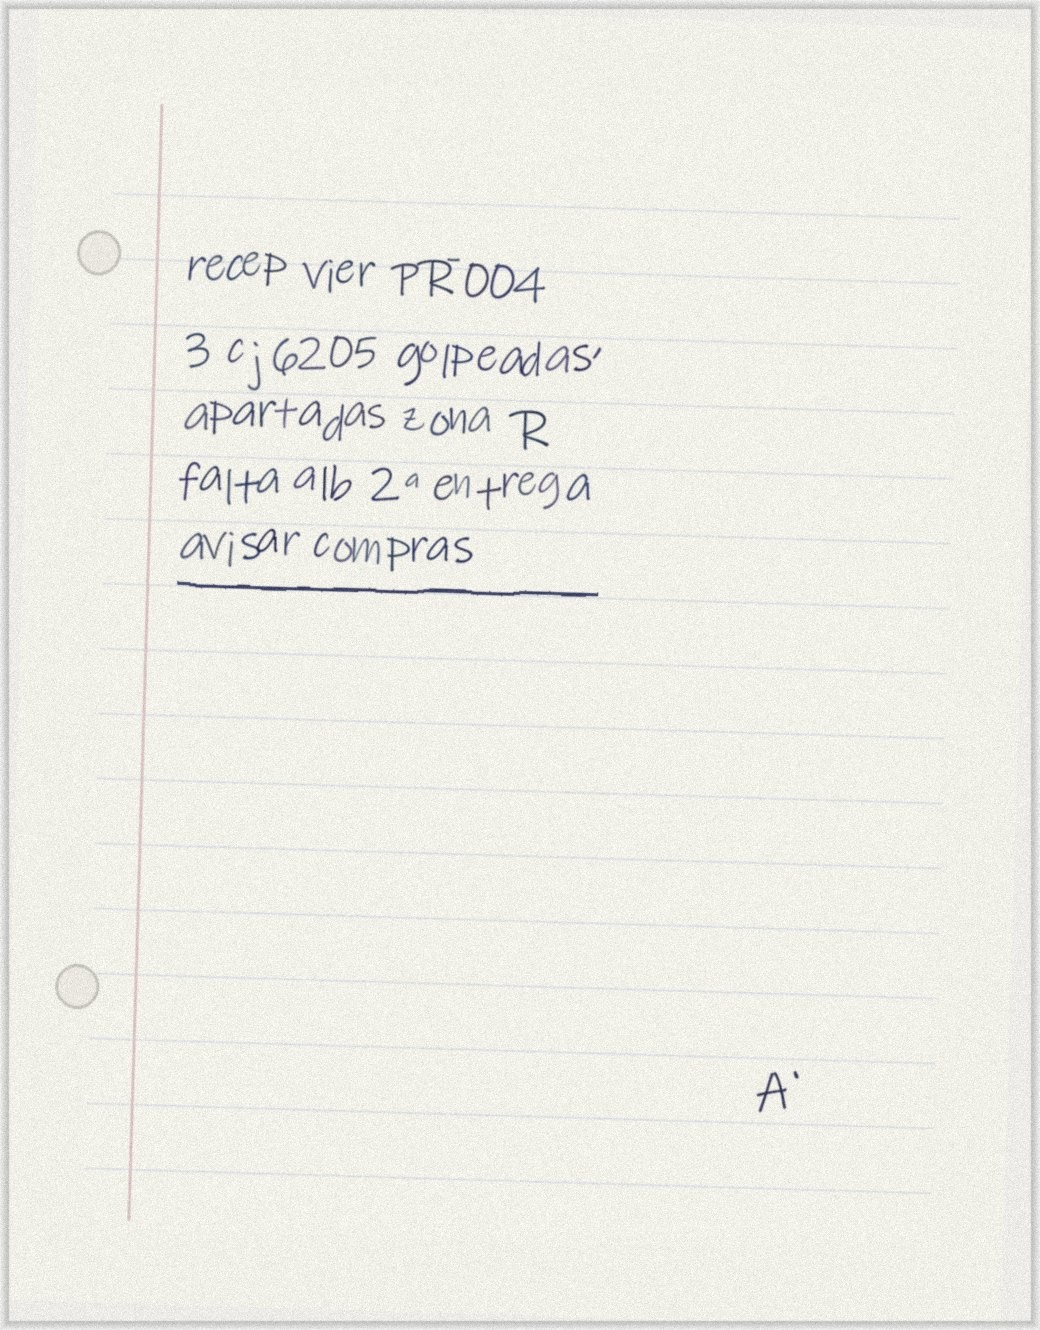 recep vier PR-004
3 cj 6205 golpeadas,
apartadas zona R
falta alb 2ª entrega
avisar compras
A.